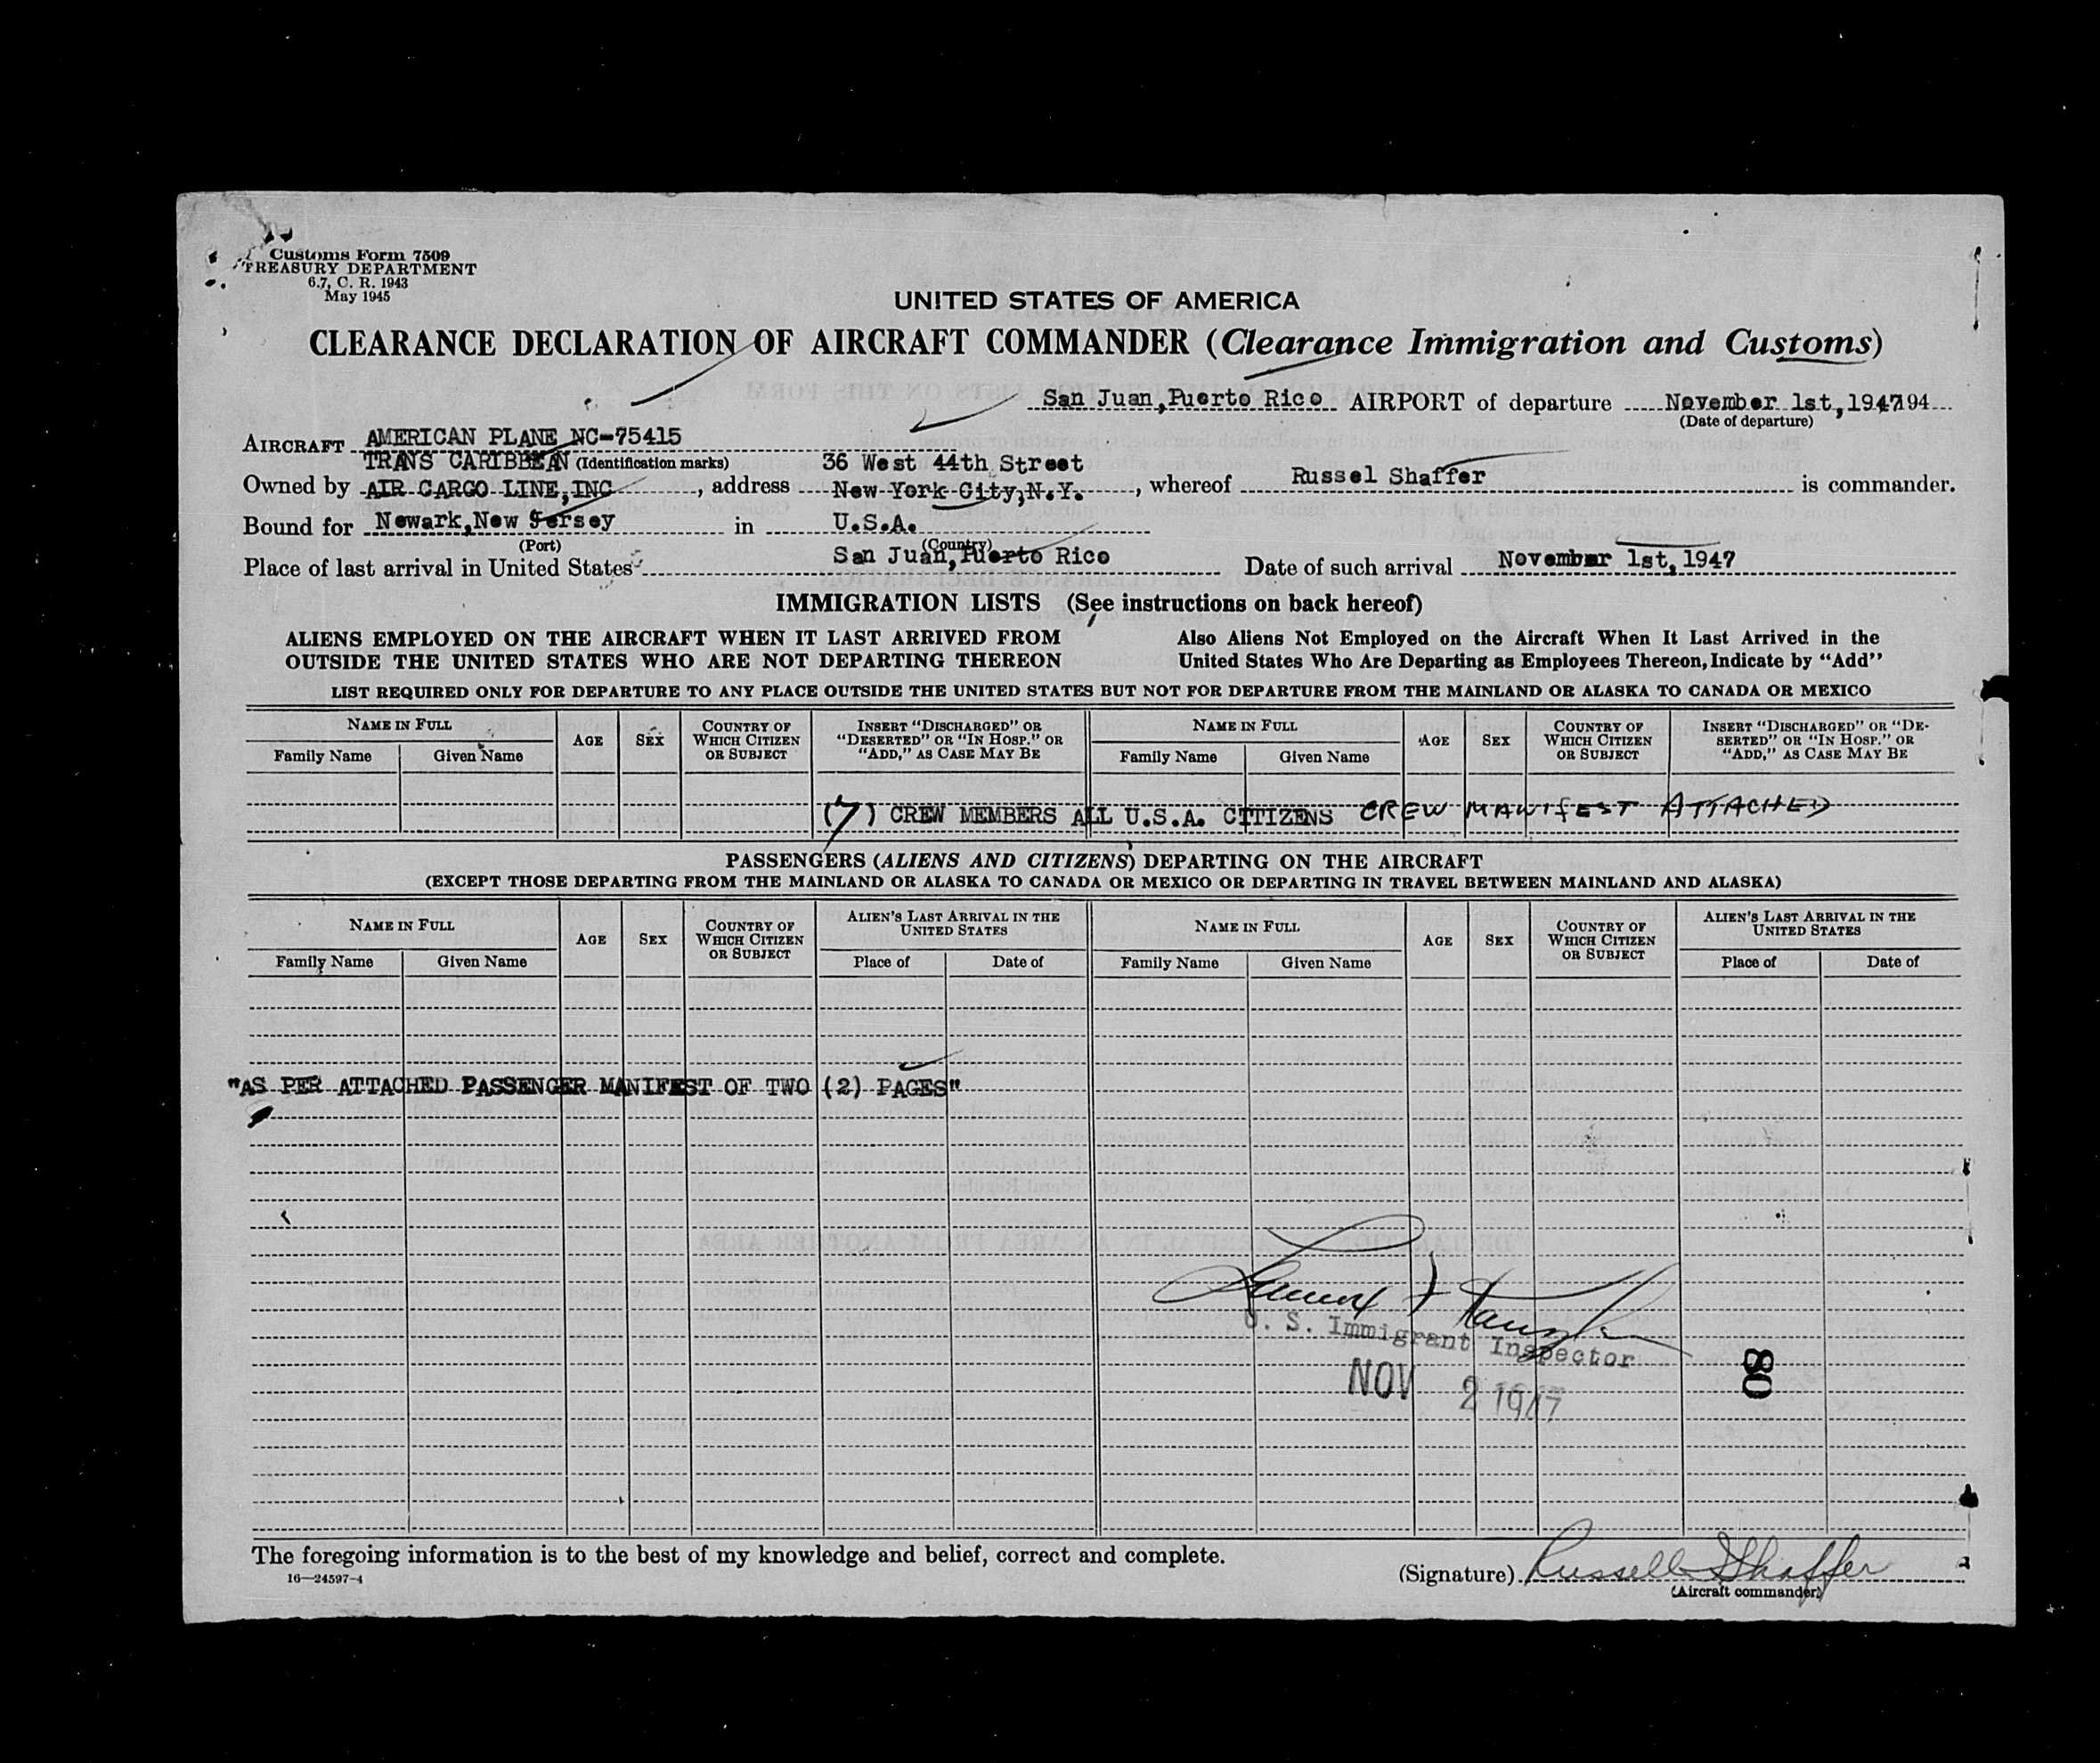 Customs Form 7509
TREASURY DEPARTMENT
6.7, C. R. 1943
May 1945
UNITED STATES OF AMERICA
CLEARANCE DECLARATION OF AIRCRAFT COMMANDER (Clearance Immigration and Customs)
San Juan, Puerto Rico AIRPORT of departure November 1st, 1947 194
(Date of departure)
AIRCRAFT AMERICAN PLANE NC-75415
TRANS CARIBBEAN (Identification marks) 36 West 44th Street
Owned by AIR CARGO LINE, INC, address New York City, N.Y., whereof Russel Shaffer is commander.
Bound for Newark, New Jersey in U.S.A.
(Port) (Country)
Place of last arrival in United States San Juan, Puerto Rico Date of such arrival November 1st, 1947
IMMIGRATION LISTS (See instructions on back hereof)
ALIENS EMPLOYED ON THE AIRCRAFT WHEN IT LAST ARRIVED FROM
OUTSIDE THE UNITED STATES WHO ARE NOT DEPARTING THEREON
Also Aliens Not Employed on the Aircraft When It Last Arrived in the
United States Who Are Departing as Employees Thereon, Indicate by "Add"
LIST REQUIRED ONLY FOR DEPARTURE TO ANY PLACE OUTSIDE THE UNITED STATES BUT NOT FOR DEPARTURE FROM THE MAINLAND OR ALASKA TO CANADA OR MEXICO
NAME IN FULL
Family Name Given Name
AGE
SEX
COUNTRY OF
WHICH CITIZEN
OR SUBJECT
INSERT "DISCHARGED" OR
"DESERTED" OR "IN HOSP." OR
"ADD," AS CASE MAY BE
NAME IN FULL
Family Name Given Name
AGE
SEX
COUNTRY OF
WHICH CITIZEN
OR SUBJECT
INSERT "DISCHARGED" OR "DE-
SERTED" OR "IN HOSP." OR
"ADD," AS CASE MAY BE
(7) CREW MEMBERS ALL U.S.A. CITIZENS CREW MANIFEST ATTACHED
PASSENGERS (ALIENS AND CITIZENS) DEPARTING ON THE AIRCRAFT
(EXCEPT THOSE DEPARTING FROM THE MAINLAND OR ALASKA TO CANADA OR MEXICO OR DEPARTING IN TRAVEL BETWEEN MAINLAND AND ALASKA)
NAME IN FULL
Family Name Given Name
AGE
SEX
COUNTRY OF
WHICH CITIZEN
OR SUBJECT
ALIEN'S LAST ARRIVAL IN THE
UNITED STATES
Place of Date of
NAME IN FULL
Family Name Given Name
AGE
SEX
COUNTRY OF
WHICH CITIZEN
OR SUBJECT
ALIEN'S LAST ARRIVAL IN THE
UNITED STATES
Place of Date of
"AS PER ATTACHED PASSENGER MANIFEST OF TWO (2) PAGES"
U. S. Immigrant Inspector
NOV 2 1947
80
The foregoing information is to the best of my knowledge and belief, correct and complete.
16—24597-4
(Signature) Russell Shaffer
(Aircraft commander)